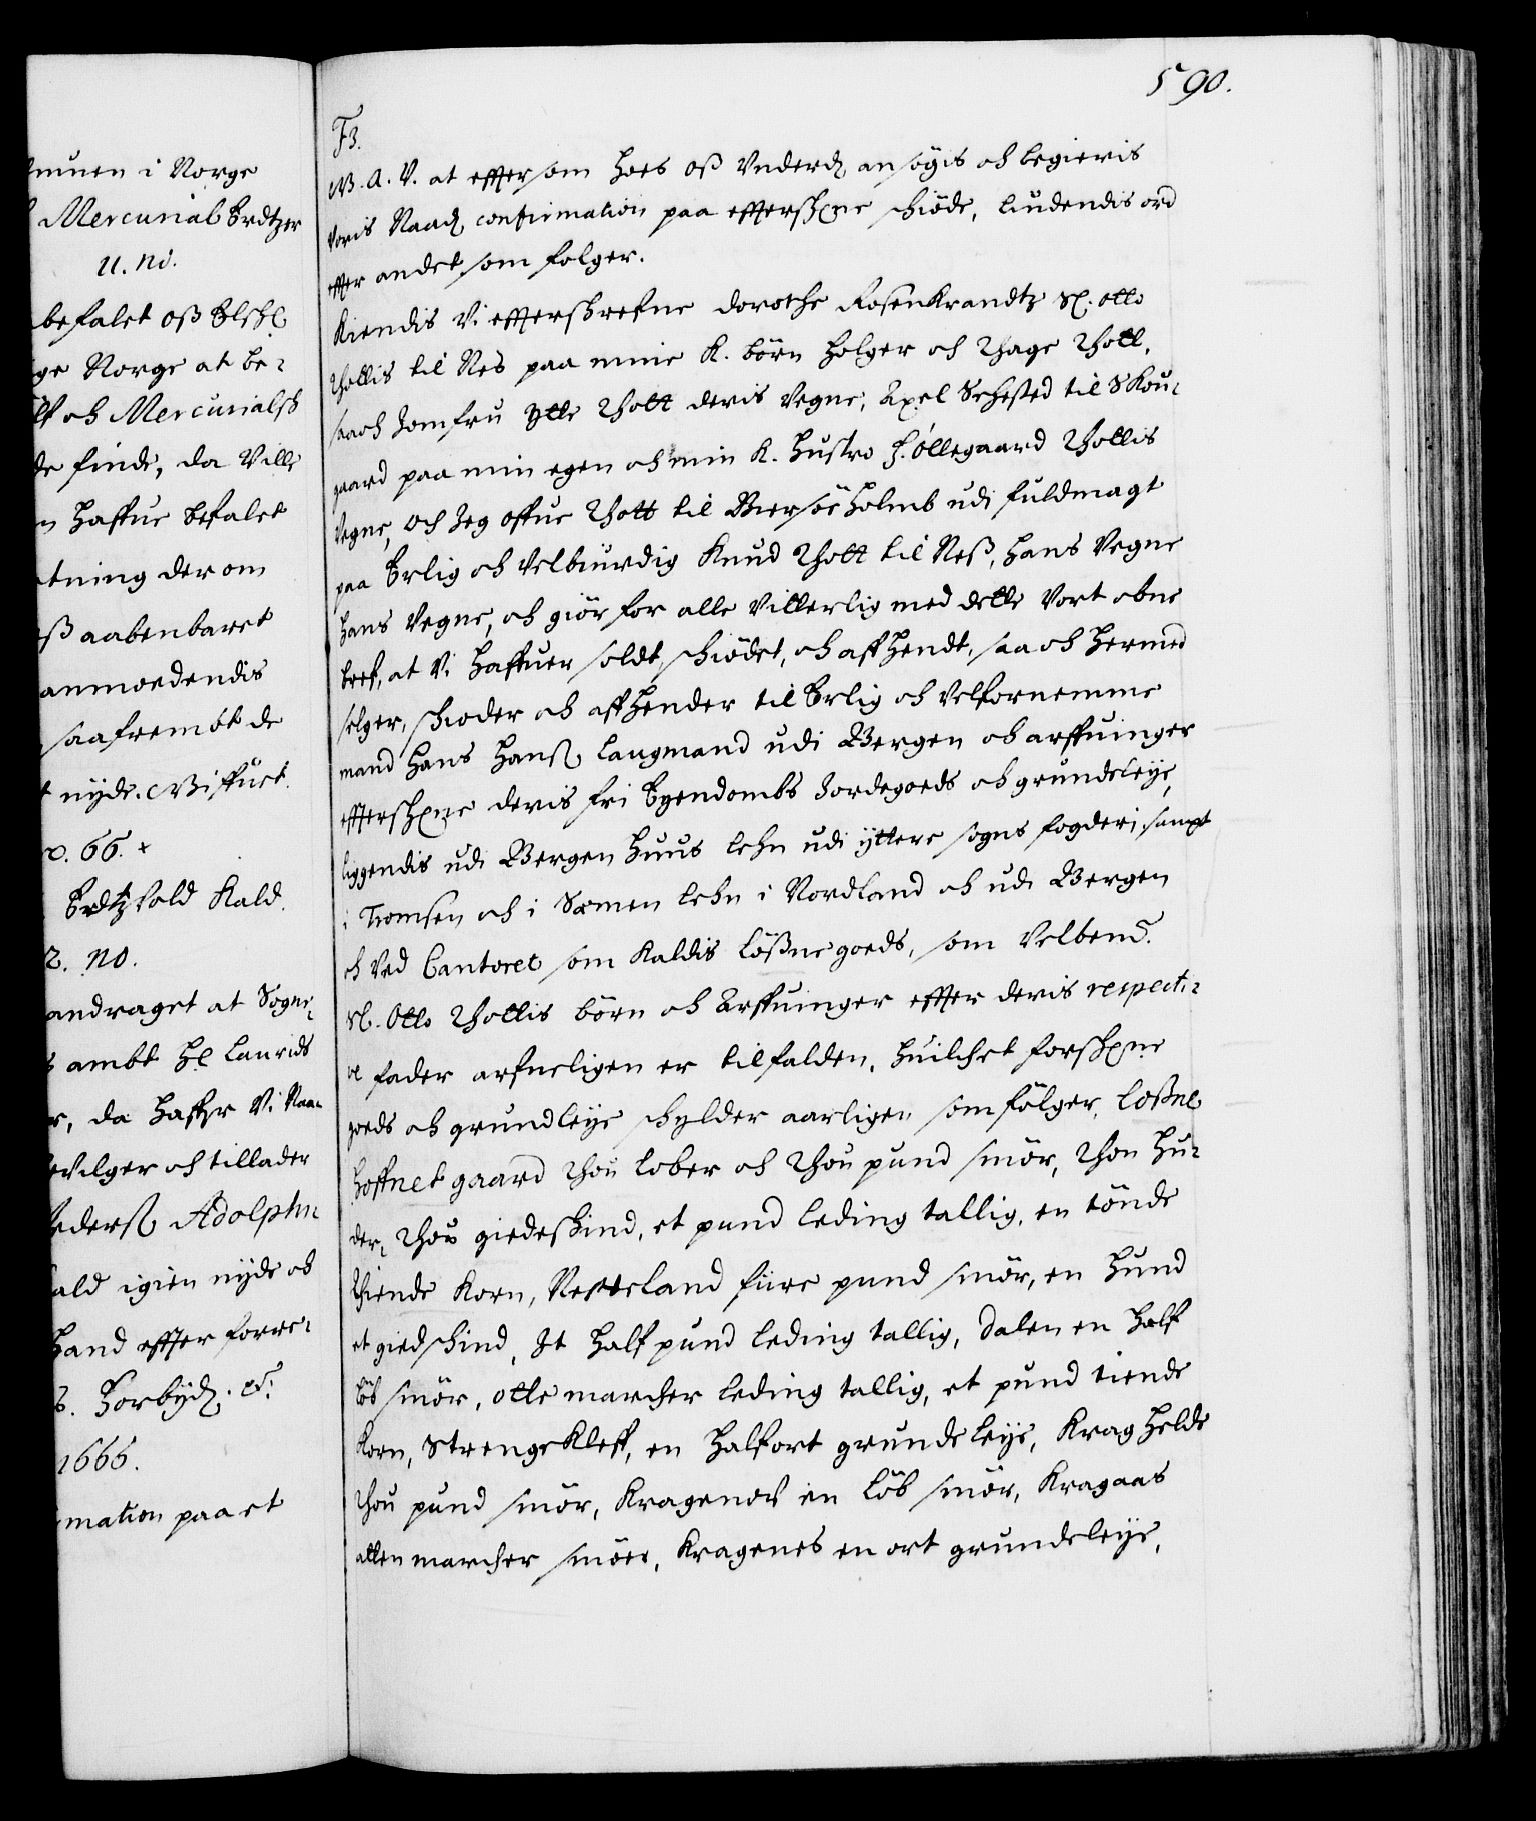 munen i Norge
Mercurial Ertzer
11. no.
befalet oß Elskl
ge Norge at be-
lf och Mercurialsk
de finde, da Ville
n haffue befalet
tning der om
ß aabenbaret
anmodendis
saafrembt de
t nyde. Vi
o. 66. +
Ertz vold Kald.
2. no.
andraget at Sogne-
ambt Hr Laurids
r, da haffr Vi Naa-
evilger och tillader
ederß Adolphu
ald igien nyde ob
hand effter forre-
s. Forbyd. etc.
1666.
mation paa et
590.
F3.
G. A. V. at effter som hoes oß Vnderd ansøgis och begieris
Voris Naad confirmation paa effterskrne schiøde, liudendis ord
effter andet som følger.
Kiendis Vi effterskrefne Dorothe Rosenkrandtz Sl. Otto
Thottis til Nes paa mine K. børn Holger och Thage Thott,
saa och Jomfru Ytte Thott deris Vegne, Axel Sehested til Skou-
gaard paa min egen och min K. Hustro f. Øllegaard Thottis
Vegne, och Jeg Offue Thott til Biersøeholmb udi fuldmagt
paa Erlig och Velbiurdig Knud Thott til Neß, hans Vegne
hans Vegne, och giør for alle Vitterlig med dette Vort obne
bref, at Vi haffuer soldt, schiødet, och affhendt, saa och hermed
selger, schøder och affhender til Erlig och Velfornemme
mand Hans Hanß Laugmand udi Bergen och arffuinger
effterskrne deris fri Egendombs Jordegoeds och grundeleye,
liggendis udi Bergenhuus Lehn udi yttere sogns fogderi sampt
i Tromsen och i Somen Lehn i Nordland och udi Bergen
och Ved Cantoret som Kaldis Løßnegoeds, som Velbemt.
Sl. Otto Thottis børn och Arffuinger effter deris respecti-
ve fader arfueligen er tilfalden, huilchet forskrne
goeds och grundleye schylder aarligen som følger, Loßne
Hoffnet gaard thou Lober och thou pund smør, thou hu-
der, thou giedeskind, et pund Leding tallig, en tønde
thiende Korn, Nesseland fiire pund smør, en hund
et giedschind, It half pund Leding tallig, Dalen en half
Løb smør, otte marcher Leding tallig, et pund tiende
Korn, Strengekleff, en halfort grundeleye, Kraghelde
thou pund smør, Kragenov en Løb smør, Kragaas
atten marcher smøer, Kragenes en ort grundeleye,